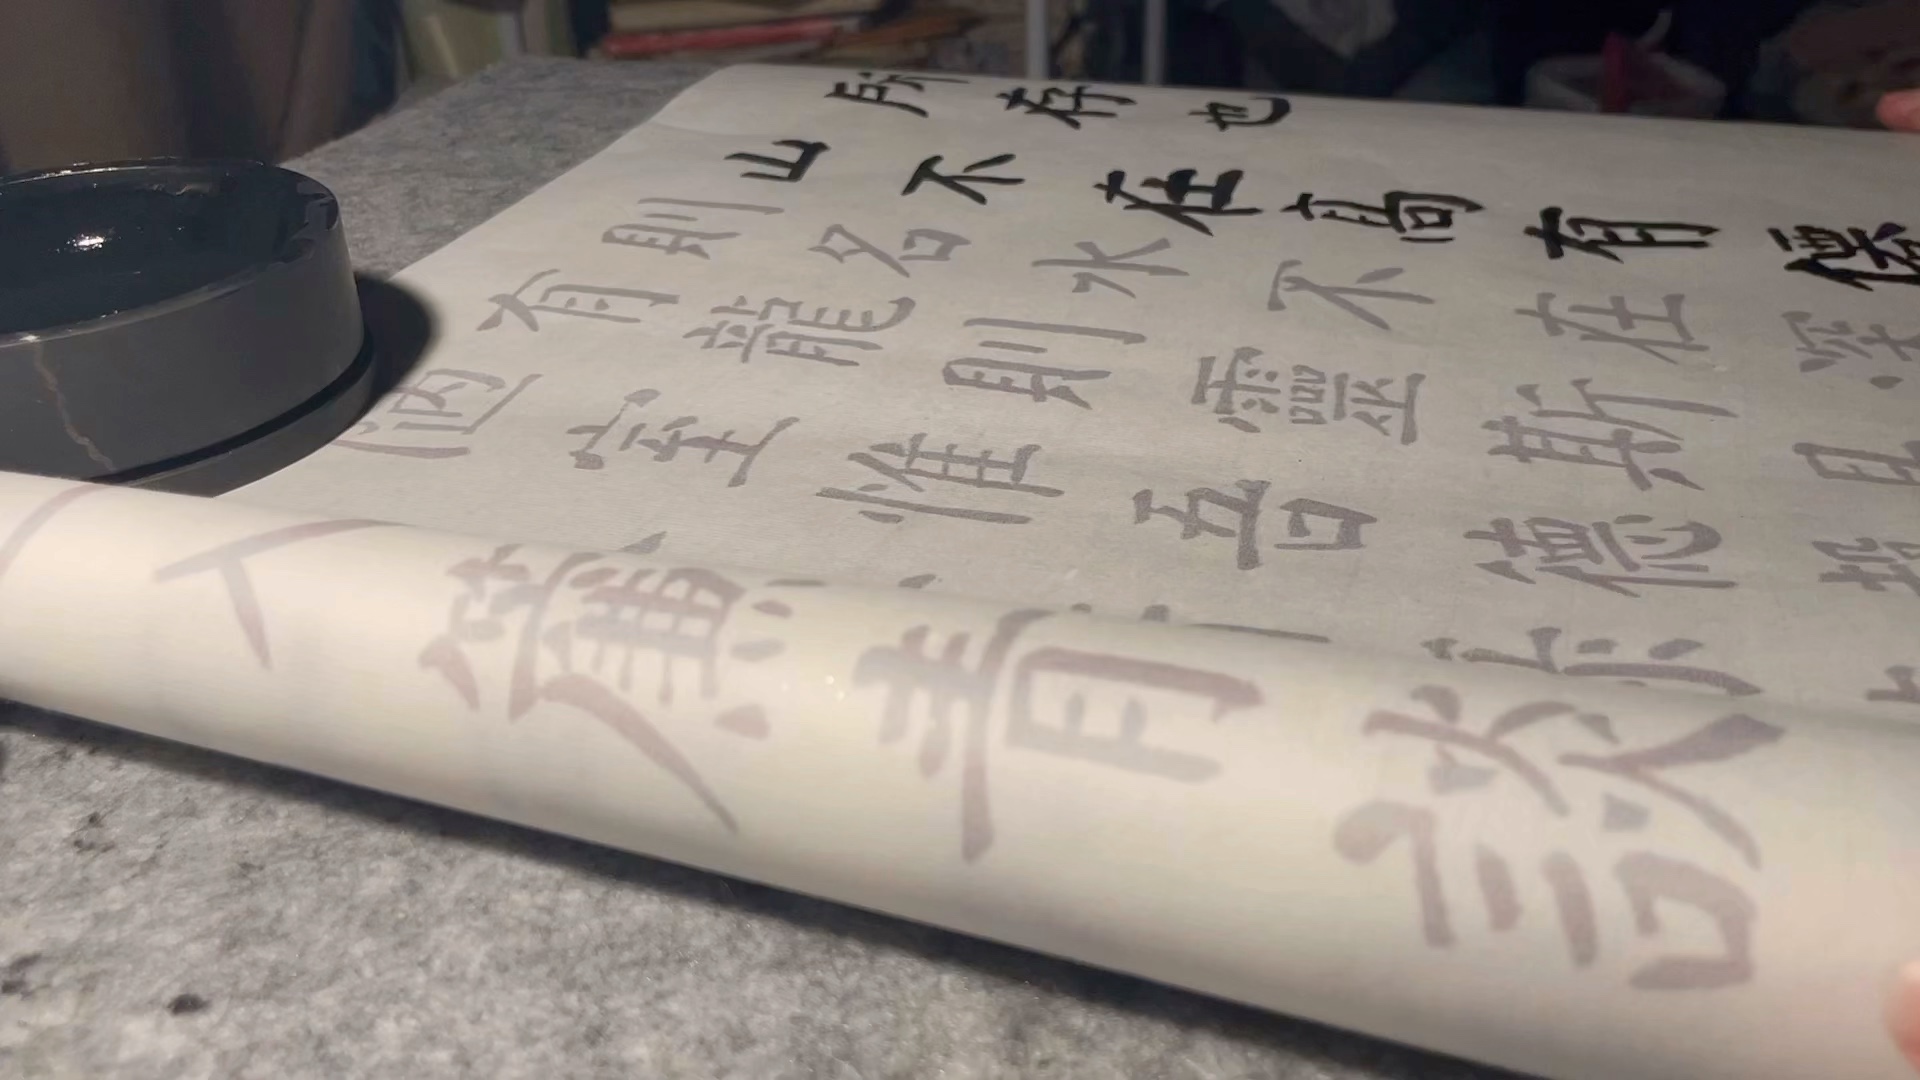 所存也
山不在高有僊
則名水不在深
有龍則靈斯是
陋室惟吾德馨
入簾青談